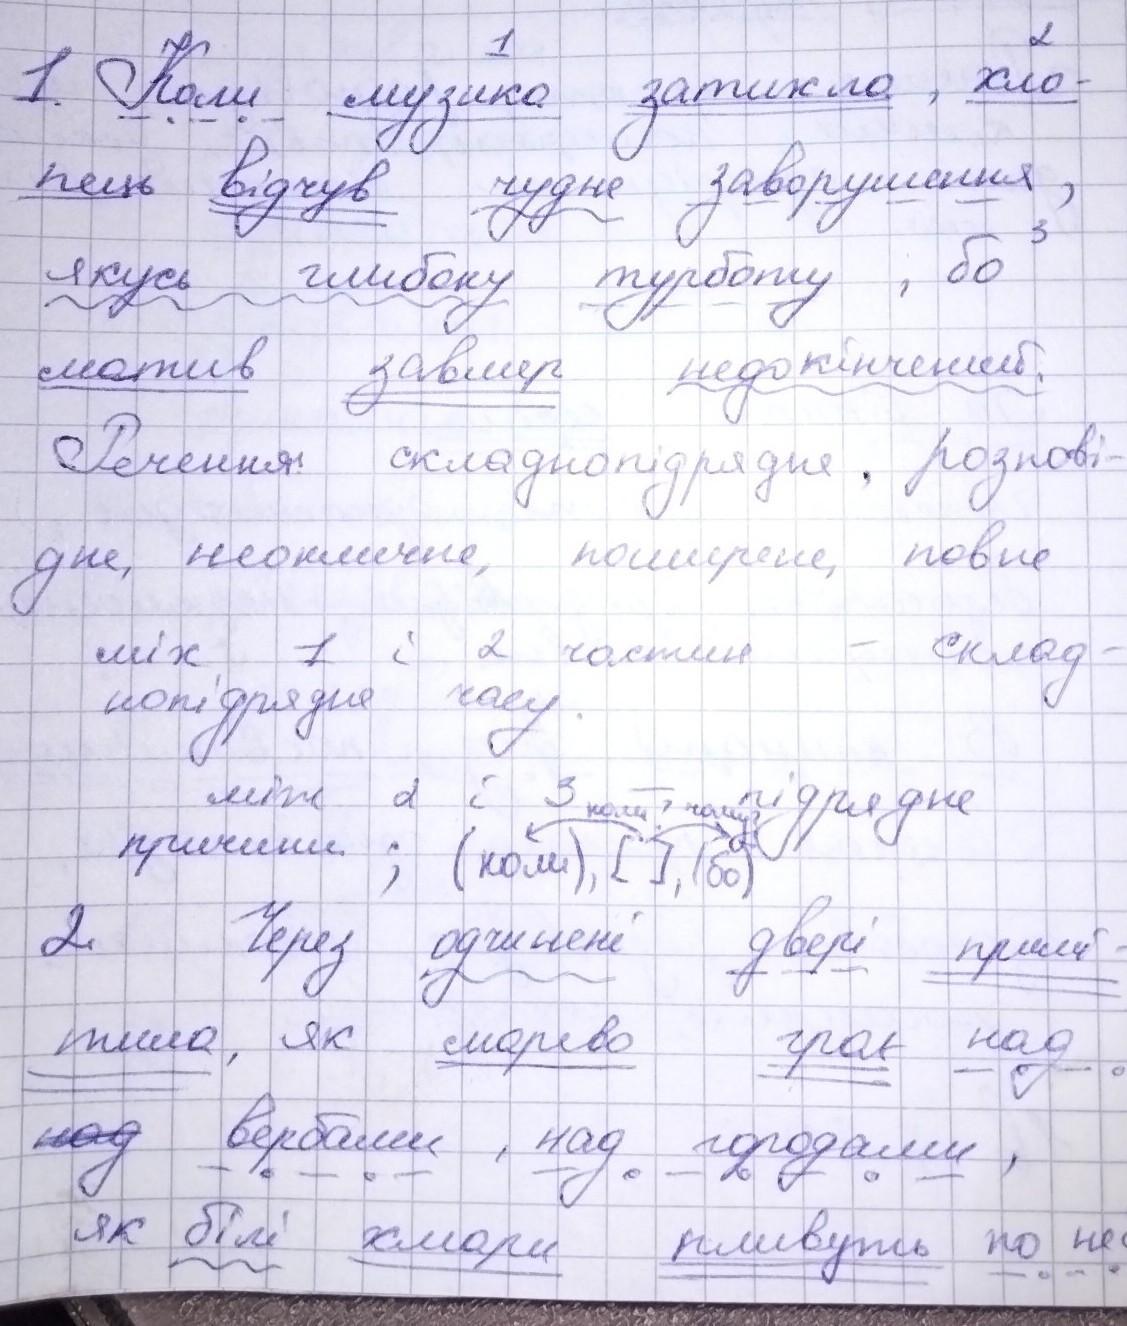 1. Коли музика затихла, хло-
пець відчув чудне заворушення,
якусь глибоку турботу, бо
мотив завмер недокінчений.
Речення: складнопідрядне, розпові-
дне, неоклична, поширене, повне
між 1 і 2 частин – склад-
нопідрядне часу.
між 2 і 3 – підрядне
коли? чому?
причини; (коли), [ ], (бо)
2. Через одчинені двері примі-
тила, як марево грає над
над вербами, над городами,
як білі хмари пливуть по не